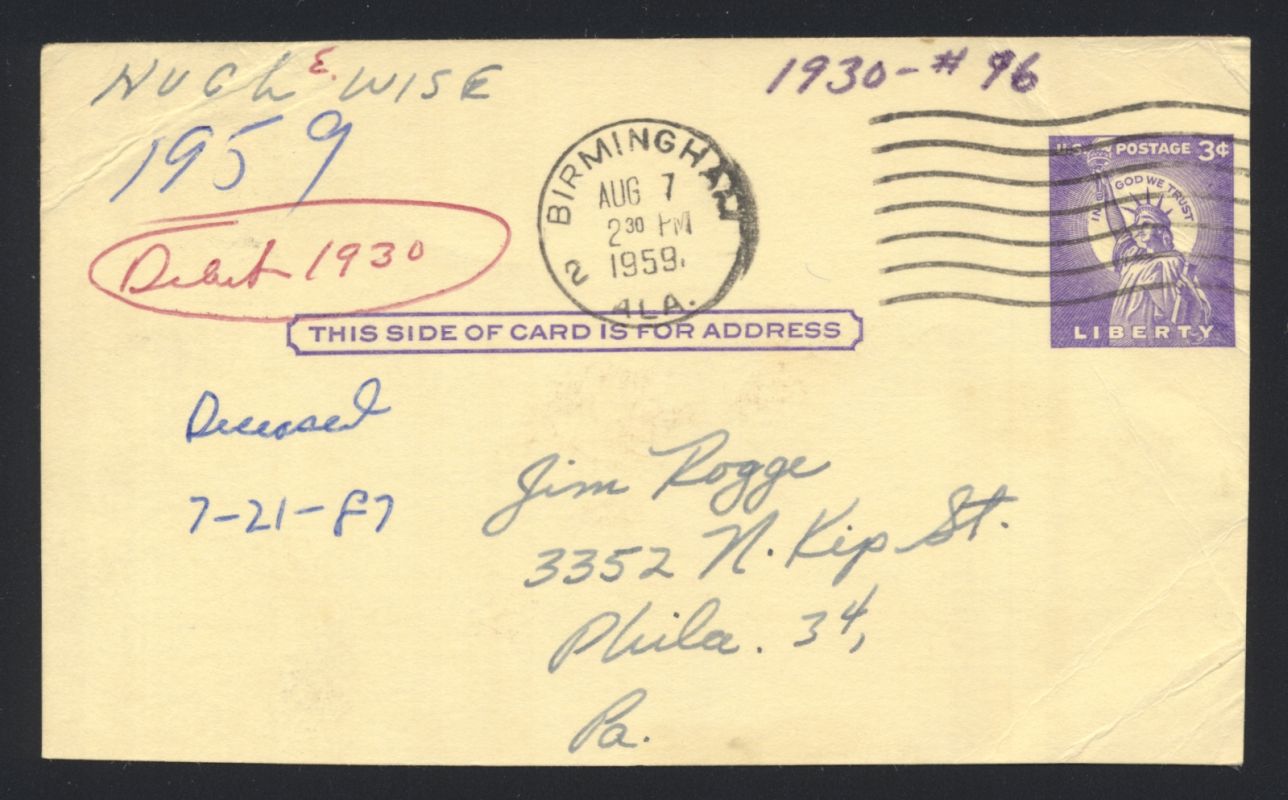 HUGH E. WISE
1930-#96
1959
Debut 1930
BIRMINGHAM
AUG 7
2 30 PM
1959
2 ALA.
U.S. POSTAGE 3¢
IN GOD WE TRUST
LIBERTY
THIS SIDE OF CARD IS FOR ADDRESS
Deceased
7-21-87
Jim Rogge
3352 N. Kip St.
Phila. 34,
Pa.